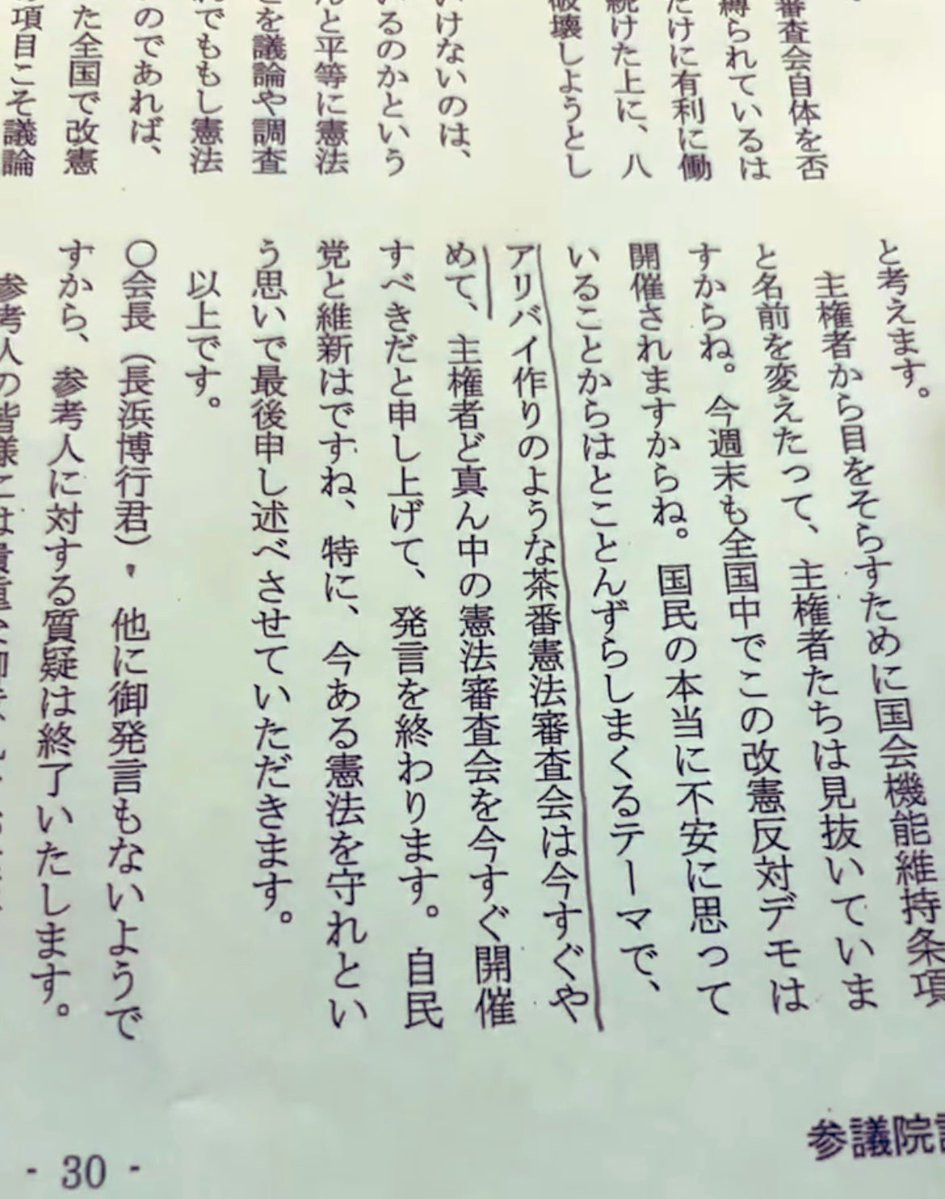 審査会自体を否
縛られているは
だけに有利に働
続けた上に、八
破壊しようとし
いけないのは、
いるのかという
んと平等に憲法
を議論や調査
れでももし憲法
のであれば、
た全国で改憲
項目こそ議論
と考えます。
主権者から目をそらすために国会機能維持条項
と名前を変えたって、主権者たちは見抜いていま
すからね。今週末も全国中でこの改憲反対デモは
開催されますからね。国民の本当に不安に思って
いることからはとことんずらしまくるテーマで、
アリバイ作りのような茶番憲法審査会は今すぐや
めて、主権者ど真ん中の憲法審査会を今すぐ開催
すべきだと申し上げて、発言を終わります。自民
党と維新はですね、特に、今ある憲法を守れとい
う思いで最後申し述べさせていただきます。
以上です。
○会長（長浜博行君）　他に御発言もないようで
すから、参考人に対する質疑は終了いたします。
参考人の皆様には貴重な御
参議院
- 30 -